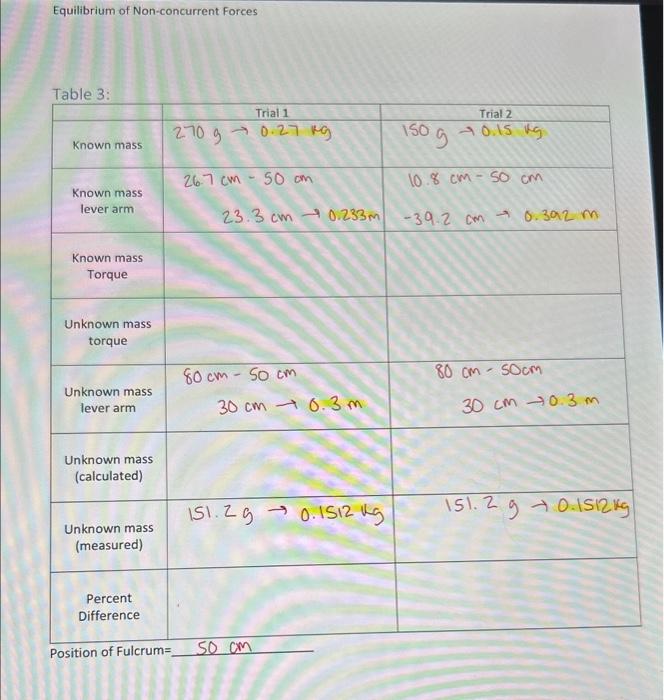 Equilibrium of Non-concurrent Forces
Table 3:
Trial 1 Trial 2
Known mass 270 g → 0.27 kg 150 g → 0.15 kg
Known mass lever arm
26.7 cm - 50 cm 10.8 cm - 50 cm
23.3 cm → 0.233m -39.2 cm → 0.392 m
Known mass
Torque
Unknown mass
torque
Unknown mass
lever arm
80 cm - 50 cm 80 cm - 50cm
30 cm → 0.3 m 30 cm → 0.3 m
Unknown mass
(calculated)
Unknown mass
(measured)
151.2 g → 0.1512 kg 151.2 g → 0.1512 kg
Percent
Difference
Position of Fulcrum= 50 cm